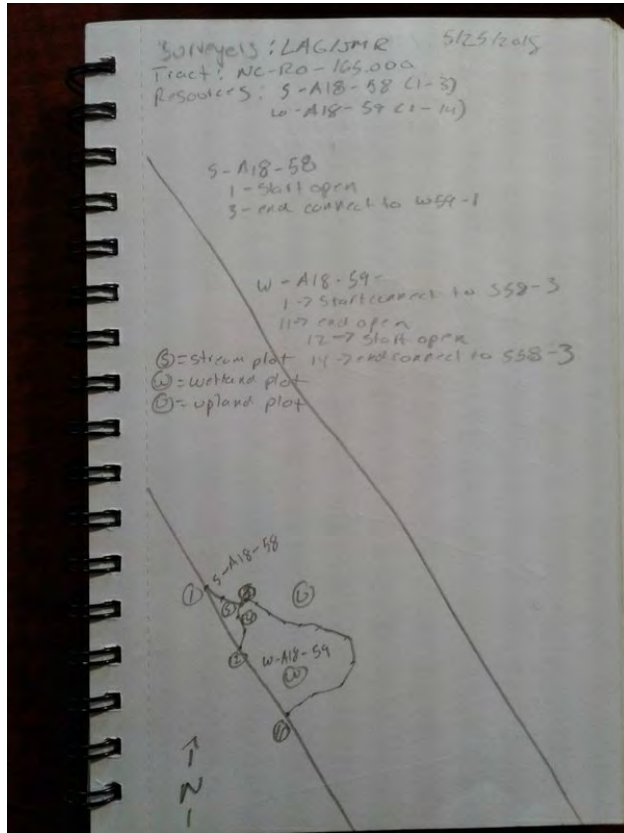 Surveyors: LAG/JMR 5/25/2015
Tract: NC-RO-165.000
Resources: S-A18-58 (1-3)
W-A18-59 (1-14)
S-A18-58
1 - start open
3 - end connect to W59-1
W-A18-59-
1 -> start connect to S58-3
11 -> end open
12 -> start open
14 -> end connect to S58-3
(S) = stream plot
(W) = wetland plot
(U) = upland plot
S-A18-58
1
S
U
W-A18-59
W
11
N